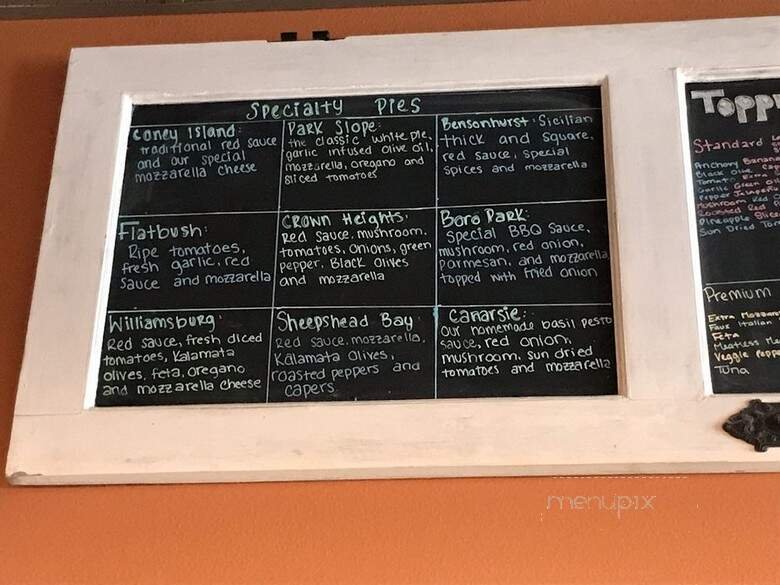 Specialty Pies
Coney Island:
traditional red sauce
and our special
mozzarella cheese
Park Slope:
the classic white pie,
garlic infused olive oil,
mozzarella, oregano and
sliced tomatoes
Bensonhurst: Sicilian
thick and square,
red sauce, special
spices and mozzarella
Flatbush:
Ripe tomatoes,
fresh garlic, red
sauce and mozzarella
Crown Heights:
Red sauce, mushroom,
tomatoes, onions, green
pepper, Black Olives
and mozzarella
Boro Park:
Special BBQ Sauce,
mushroom, red onion,
parmesan, and mozzarella
topped with fried onion
Williamsburg:
Red sauce, fresh diced
tomatoes, Kalamata
olives, feta, oregano
and mozzarella cheese
Sheepshead Bay:
Red sauce, mozzarella,
Kalamata Olives,
roasted peppers and
capers
Canarsie:
Our homemade basil pesto
sauce, red onion,
mushroom, sun dried
tomatoes and mozzarella
Topp
Standard
Anchovy Banana
Black Olive
Tomato Extra
Garlic Green
Pepper
Mushroom Red
Roasted Red
Pineapple
Sun Dried Tom
Premium
Extra
Faux Italian
Feta
Meatless
Veggie Pepp
Tuna
menupix